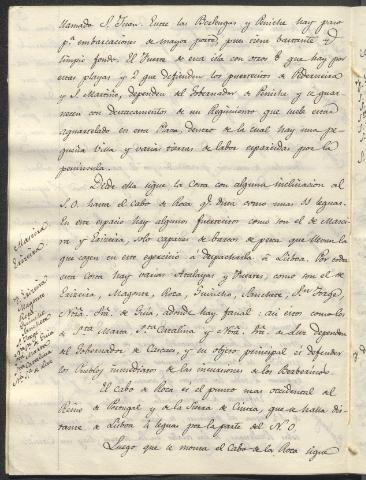 llamado S. Juan. Entre las Berlengas y Peniche hay paso
pª embarcaciones de mayor porte, pues tiene bastante y
limpio fondo. El Fuerte de esta isla con otros 6 que hay por
estas playas y 2 que defienden los puertecitos de Pederneira
y S. Martiño, dependen del Gobernador de Peniche y se guar-
necen con destacamentos de un Regimiento que suele estar
aquartelado en esta Plaza, dentro de la cual hay una pe-
queña villa y varias tierras de labor esparcidas por la
peninsula.
Desde ella sigue la Costa con alguna inclinacion al
S.O. hasta el Cabo de Roca qe dista como unas leguas.
En este espacio hay algunos Puertecitos como son el de
y Ericeira, solo capaces de barcos de pesca que llevan la
que cogen en este egercicio a despacharla à Lisboa. Por toda
esta costa hay varias Atalayas y Fuertes, como son el de
Ericeira, Magoste, Roca, Guincho, Sanchete, Sn Jorge,
Nrã. Srã. de Guia, adonde hay fanal: asi estos como los
de Sta Marta, Sta Catalina y Nrã. Srã. de Luz dependen
del Gobernador de Cascaes, y su objeto principal es defender
los Pueblos inmediatos de las invasiones de los Berberiscos.
El Cabo de Roca es el punto mas occidental al
Reino de Portugal y de la Sierra de Cintra, que se halla dis-
tante de Lisboa leguas por la parte del N.O.
Luego que se monta el Cabo de la Roca sigue
Ericeira
Ericeira
Magoste
Roca
Guincho
Sanchete
Sn Jorge
Sta Marta
Sta Catalina